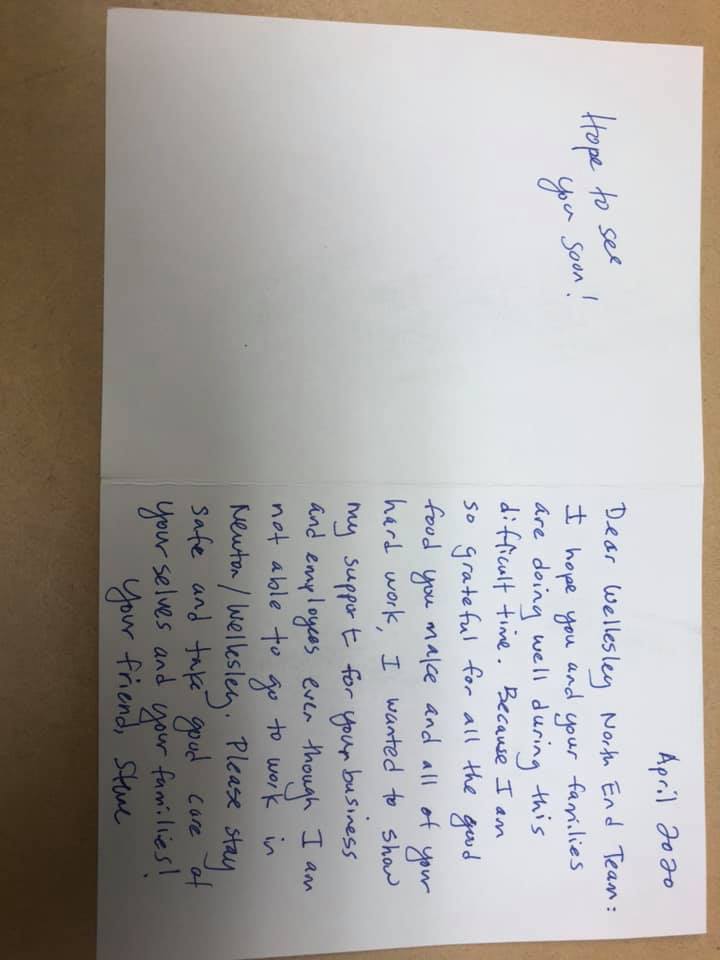 Hope to see
you soon!
April 2020
Dear Wellesley North End Team:
I hope you and your families
are doing well during this
difficult time. Because I am
so grateful for all the good
food you make and all of your
hard work, I wanted to show
my support for your business
and employees even though I am
not able to go to work in
Newton/Wellesley. Please stay
safe and take good care of
your selves and your families!
Your friend, Steve